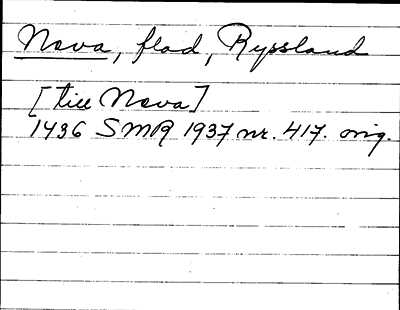 Neva, flod, Ryssland
[till Neva]
1436 SMR 1937 nr. 417. orig.